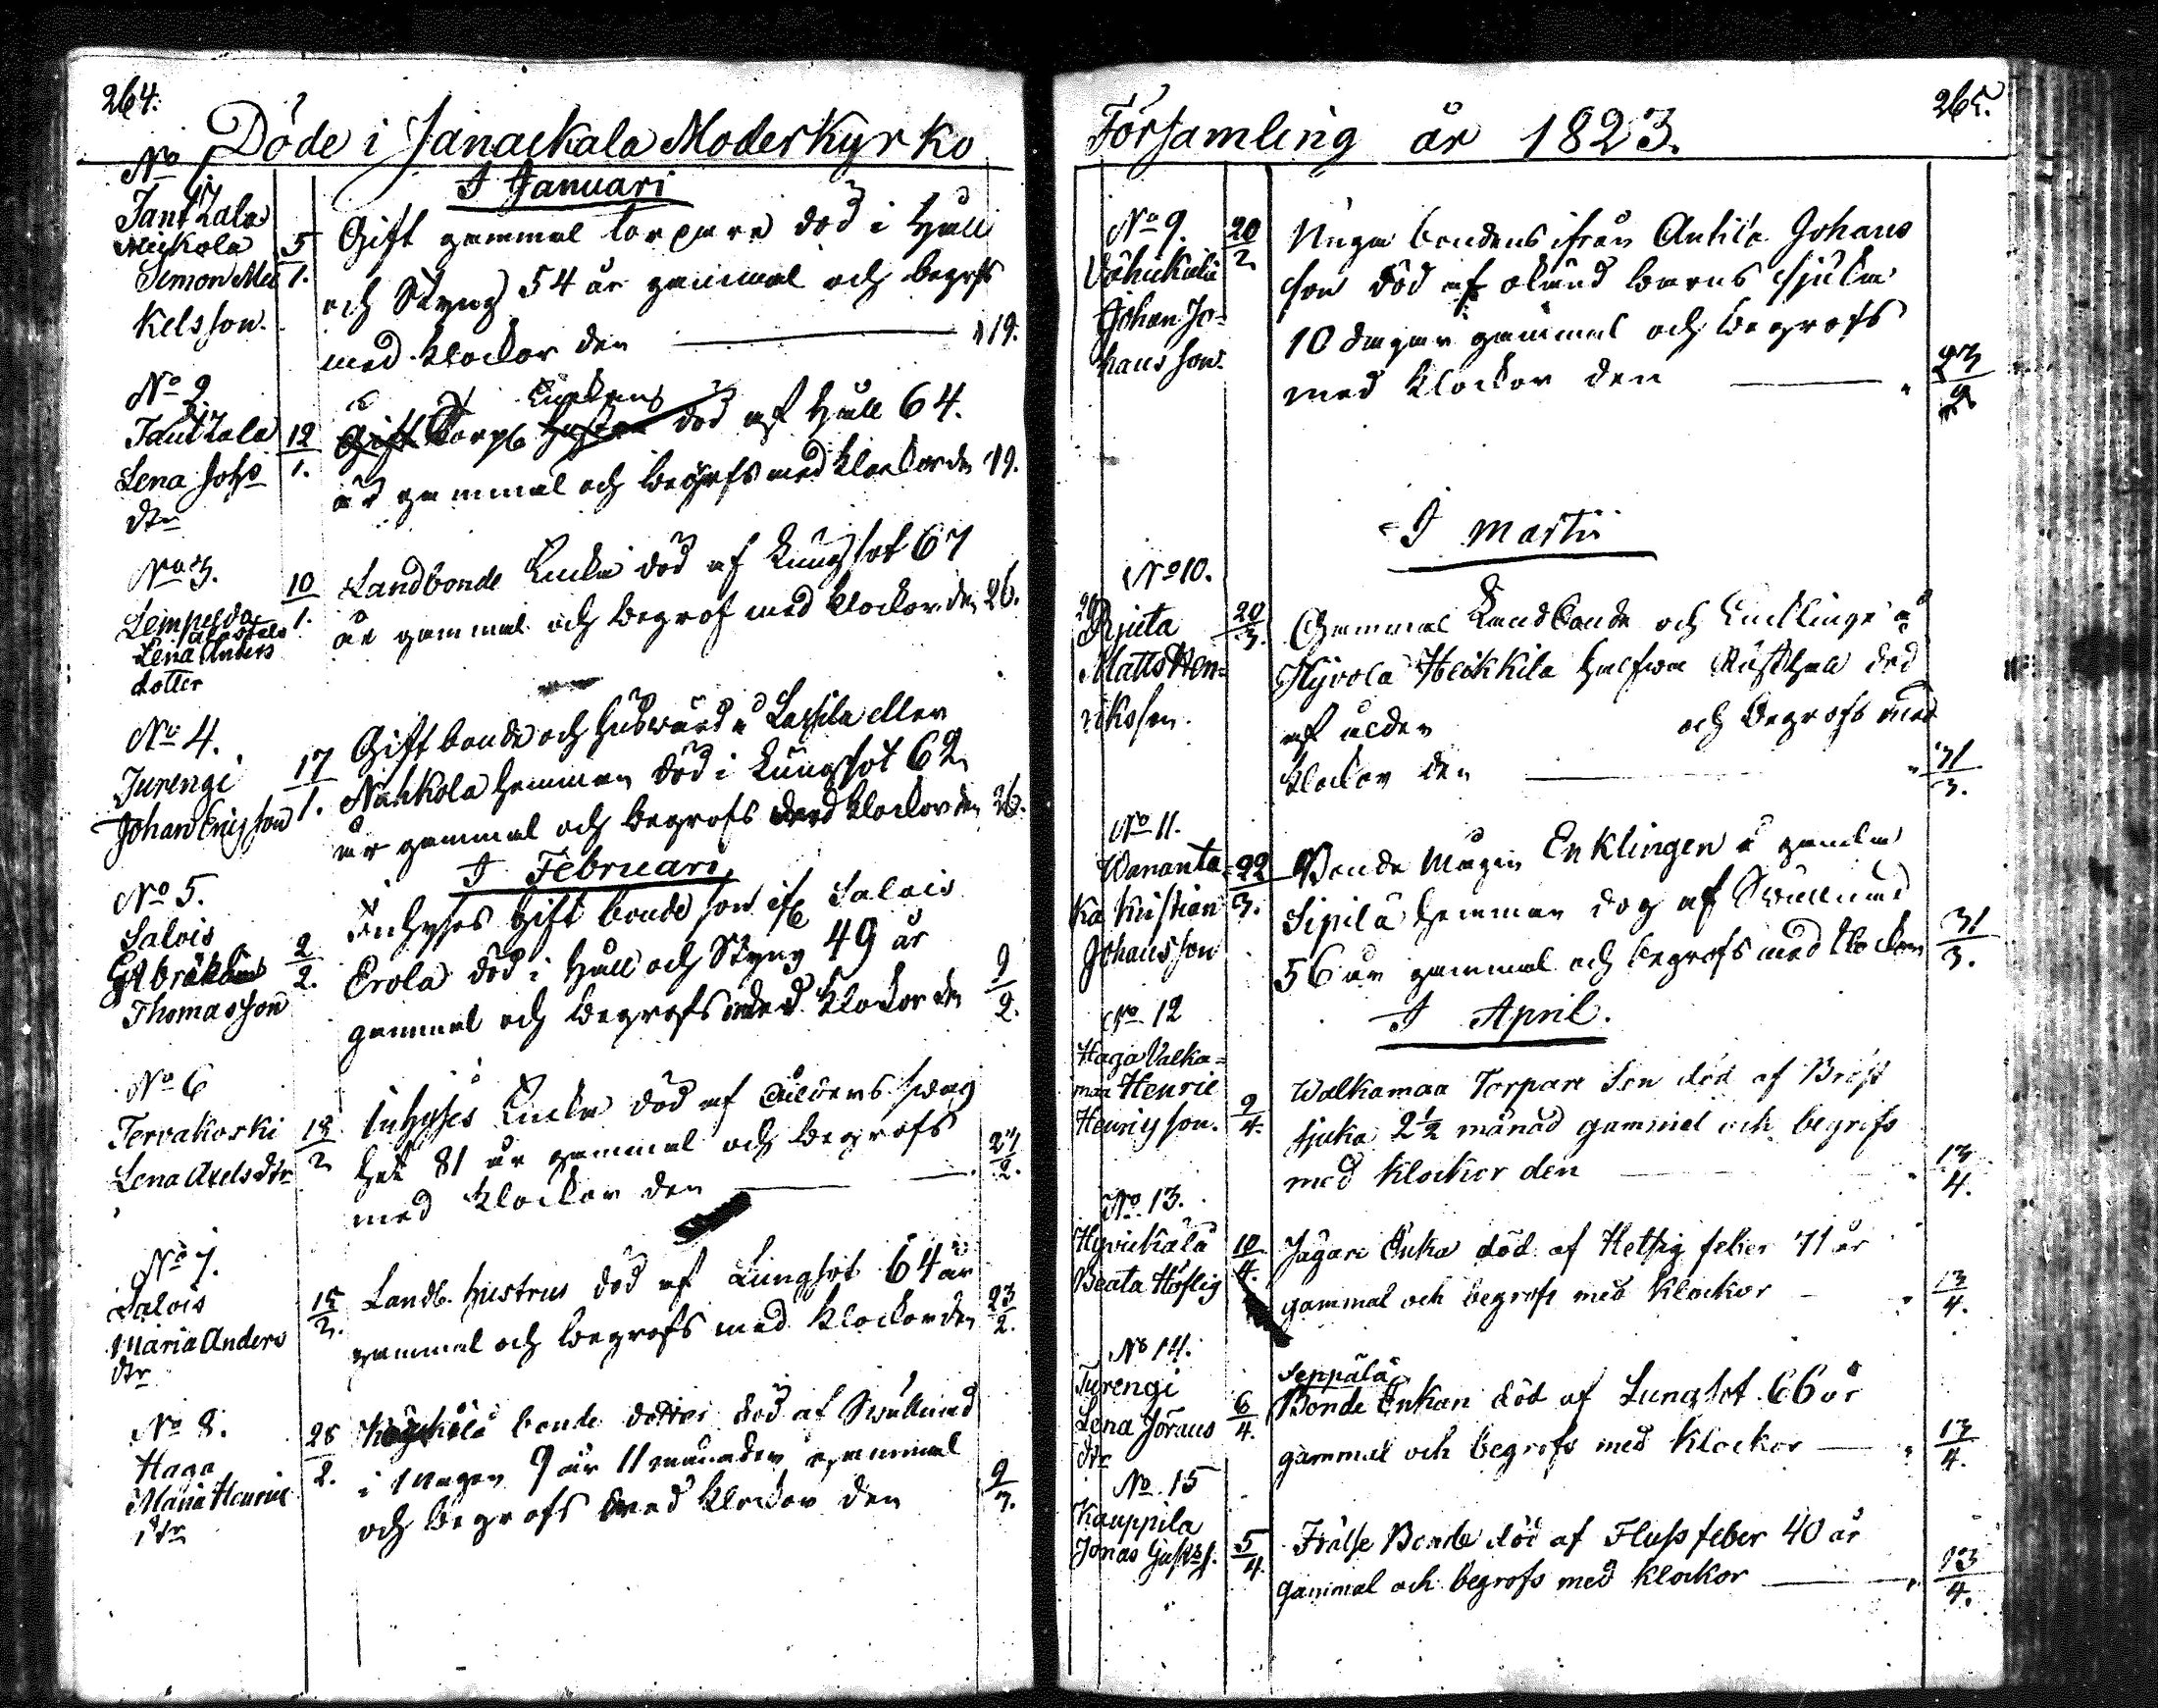 264.
Döde i Janackala Moderkyrko
No 1.
I Januari
Tantzala
Mickola
Simon Mic
kelsson.
5/1.
Gift gammal torpare död i Håll
och Styng 54 år gammal och begrofs
med klockor den 19.
No 2.
Tantzala
Lena Johs
dtr
12/1.
Enkan
Gift Torp. död af Håll 64.
år gammal och begrofs med klockor den 19.
No 3.
Lempelda
Lena Anders
dotter
10/1.
Landbonde Enka död af Lungsot 67
år gammal och begrof med klockor den 26.
No 4.
Turengi
Johan Ericsson
17/1.
Gift bonde och husvärd å Lassila eller
Nahkola hemman död i Lungsot 62
år gammal och begrofs med klockor den 26.
I Februari
No 5.
Salois
Abraham
Thomasson
2/2.
Inhyses Gift bonde son if. Salois
Erola död i Håll och Styng 49 år
gammal och begrofs med klockor den 9/2.
No 6
Tervakoski
Lena Axelsdtr
18/2
Inhyses Enka död af ålders svag
het 81 år gammal och begrofs
med klockor den 23/2.
No 7.
Salois
Maria Anders
dtr
15/2.
Landb. hustrus död af Lungsot 64 år
gammal och begrofs med klockor den 23/2.
No 8.
Haga
Maria Henric
dtr
28/2.
bonde dotter död af Svullnad
i magen 9 år 11 månader gammal
och begrofs med klockor den 9/3.
265.
Församling år 1823.
No 9.
Vähikälä
Johan Jo-
hansson.
20/2
Unga bondens ifrån Antila Johans
son död af okänd barns sjuka
10 dagar gammal och begrofs
med klockor den 23/2
I Martii
No 10.
Rjuta
Matts Hen-
rikson.
20/3.
Gammal Landbonde och Enklinge å
Hyvola Heikkila halfva Rusthall död
af ålder och begrofs med
klockor den 31/3.
No 11.
Wananta-
ka Kristian
Johansson
22/3.
Bonde Mågen Enklingen å gamla
Sipilä hemman dog af Svullnad
56 år gammal och begrofs med klockor 31/3.
I April.
No 12
Haga Valka-
maa Henric
Henricsson.
9/4.
Walkamaa Torpare Son död af Bröst
sjuka 2 1/2 månad gammal och begrofs
med klockor den 13/4.
No 13.
Hyvickälä
Beata Höflig
10/4.
Jägare Enka död af Hetsig feber 71 år
gammal och begrofs med Klockor 13/4.
No 14.
Turengi
Lena Jörans
dtr
6/4.
Seppälä
Bonde Enkan död af Lungsot 66 år
gammal och begrofs med Klockor 13/4.
No 15
Kauppila
Jonas Gustfs.
5/4.
Frälse Bonde död af Flussfeber 40 år
gammal och begrofs med klockor 13/4.